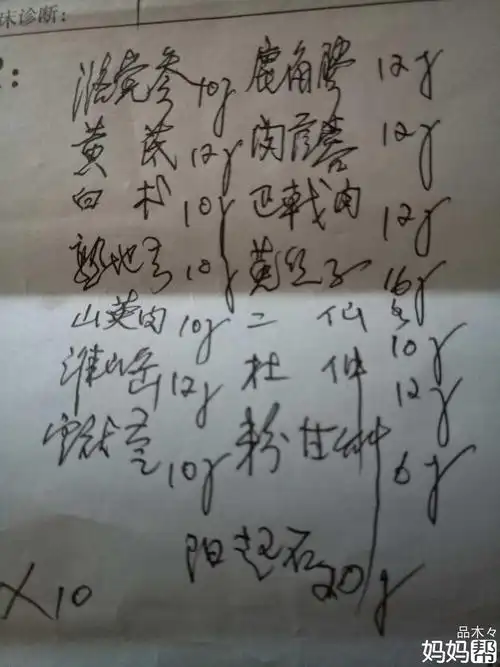 床诊断:
潞党参 10g 鹿角胶 12g
黄芪 12g 肉苁蓉 12g
白术 10g 巴戟肉 12g
熟地黄 10g 菟丝子 16g
山萸肉 10g 二仙 各10g
淮山药 12g 杜仲 12g
云茯苓 10g 粉甘草 6g
阳起石 20g
×10
品木々
妈妈帮